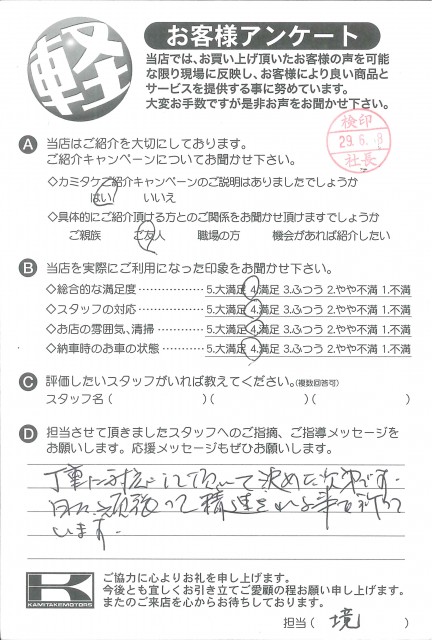 軽
お客様アンケート
当店では、お買い上げ頂いたお客様の声を可能
な限り現場に反映し、お客様により良い商品と
サービスを提供する事に努めています。
大変お手数ですが是非お声をお聞かせ下さい。
検印
29.6.-8
社長
A 当店はご紹介を大切にしております。
ご紹介キャンペーンについてお聞かせ下さい。
◇カミタケご紹介キャンペーンのご説明はありましたでしょうか
はい いいえ
◇具体的にご紹介頂ける方とのご関係をお聞かせ頂けますでしょうか
ご親族 ご友人 職場の方 機会があれば紹介したい
B 当店を実際にご利用になった印象をお聞かせ下さい。
◇総合的な満足度……………5.大満足 4.満足 3.ふつう 2.やや不満 1.不満
◇スタッフの対応……………5.大満足 4.満足 3.ふつう 2.やや不満 1.不満
◇お店の雰囲気、清掃………5.大満足 4.満足 3.ふつう 2.やや不満 1.不満
◇納車時のお車の状態………5.大満足 4.満足 3.ふつう 2.やや不満 1.不満
C 評価したいスタッフがいれば教えてください。(複数回答可)
スタッフ名( )( )( )
D 担当させて頂きましたスタッフへのご指摘、ご指導メッセージを
お願いします。応援メッセージもぜひお願いします。
丁重に対応して頂いて決めた次第です。
頑張って精進される事を祈って
います。
K
KAMITAKEMOTORS
ご協力に心よりお礼を申し上げます。
今後とも宜しくお引き立てご愛顧の程お願い申し上げます。
またのご来店を心からお待ちしております。
担当( 境 )